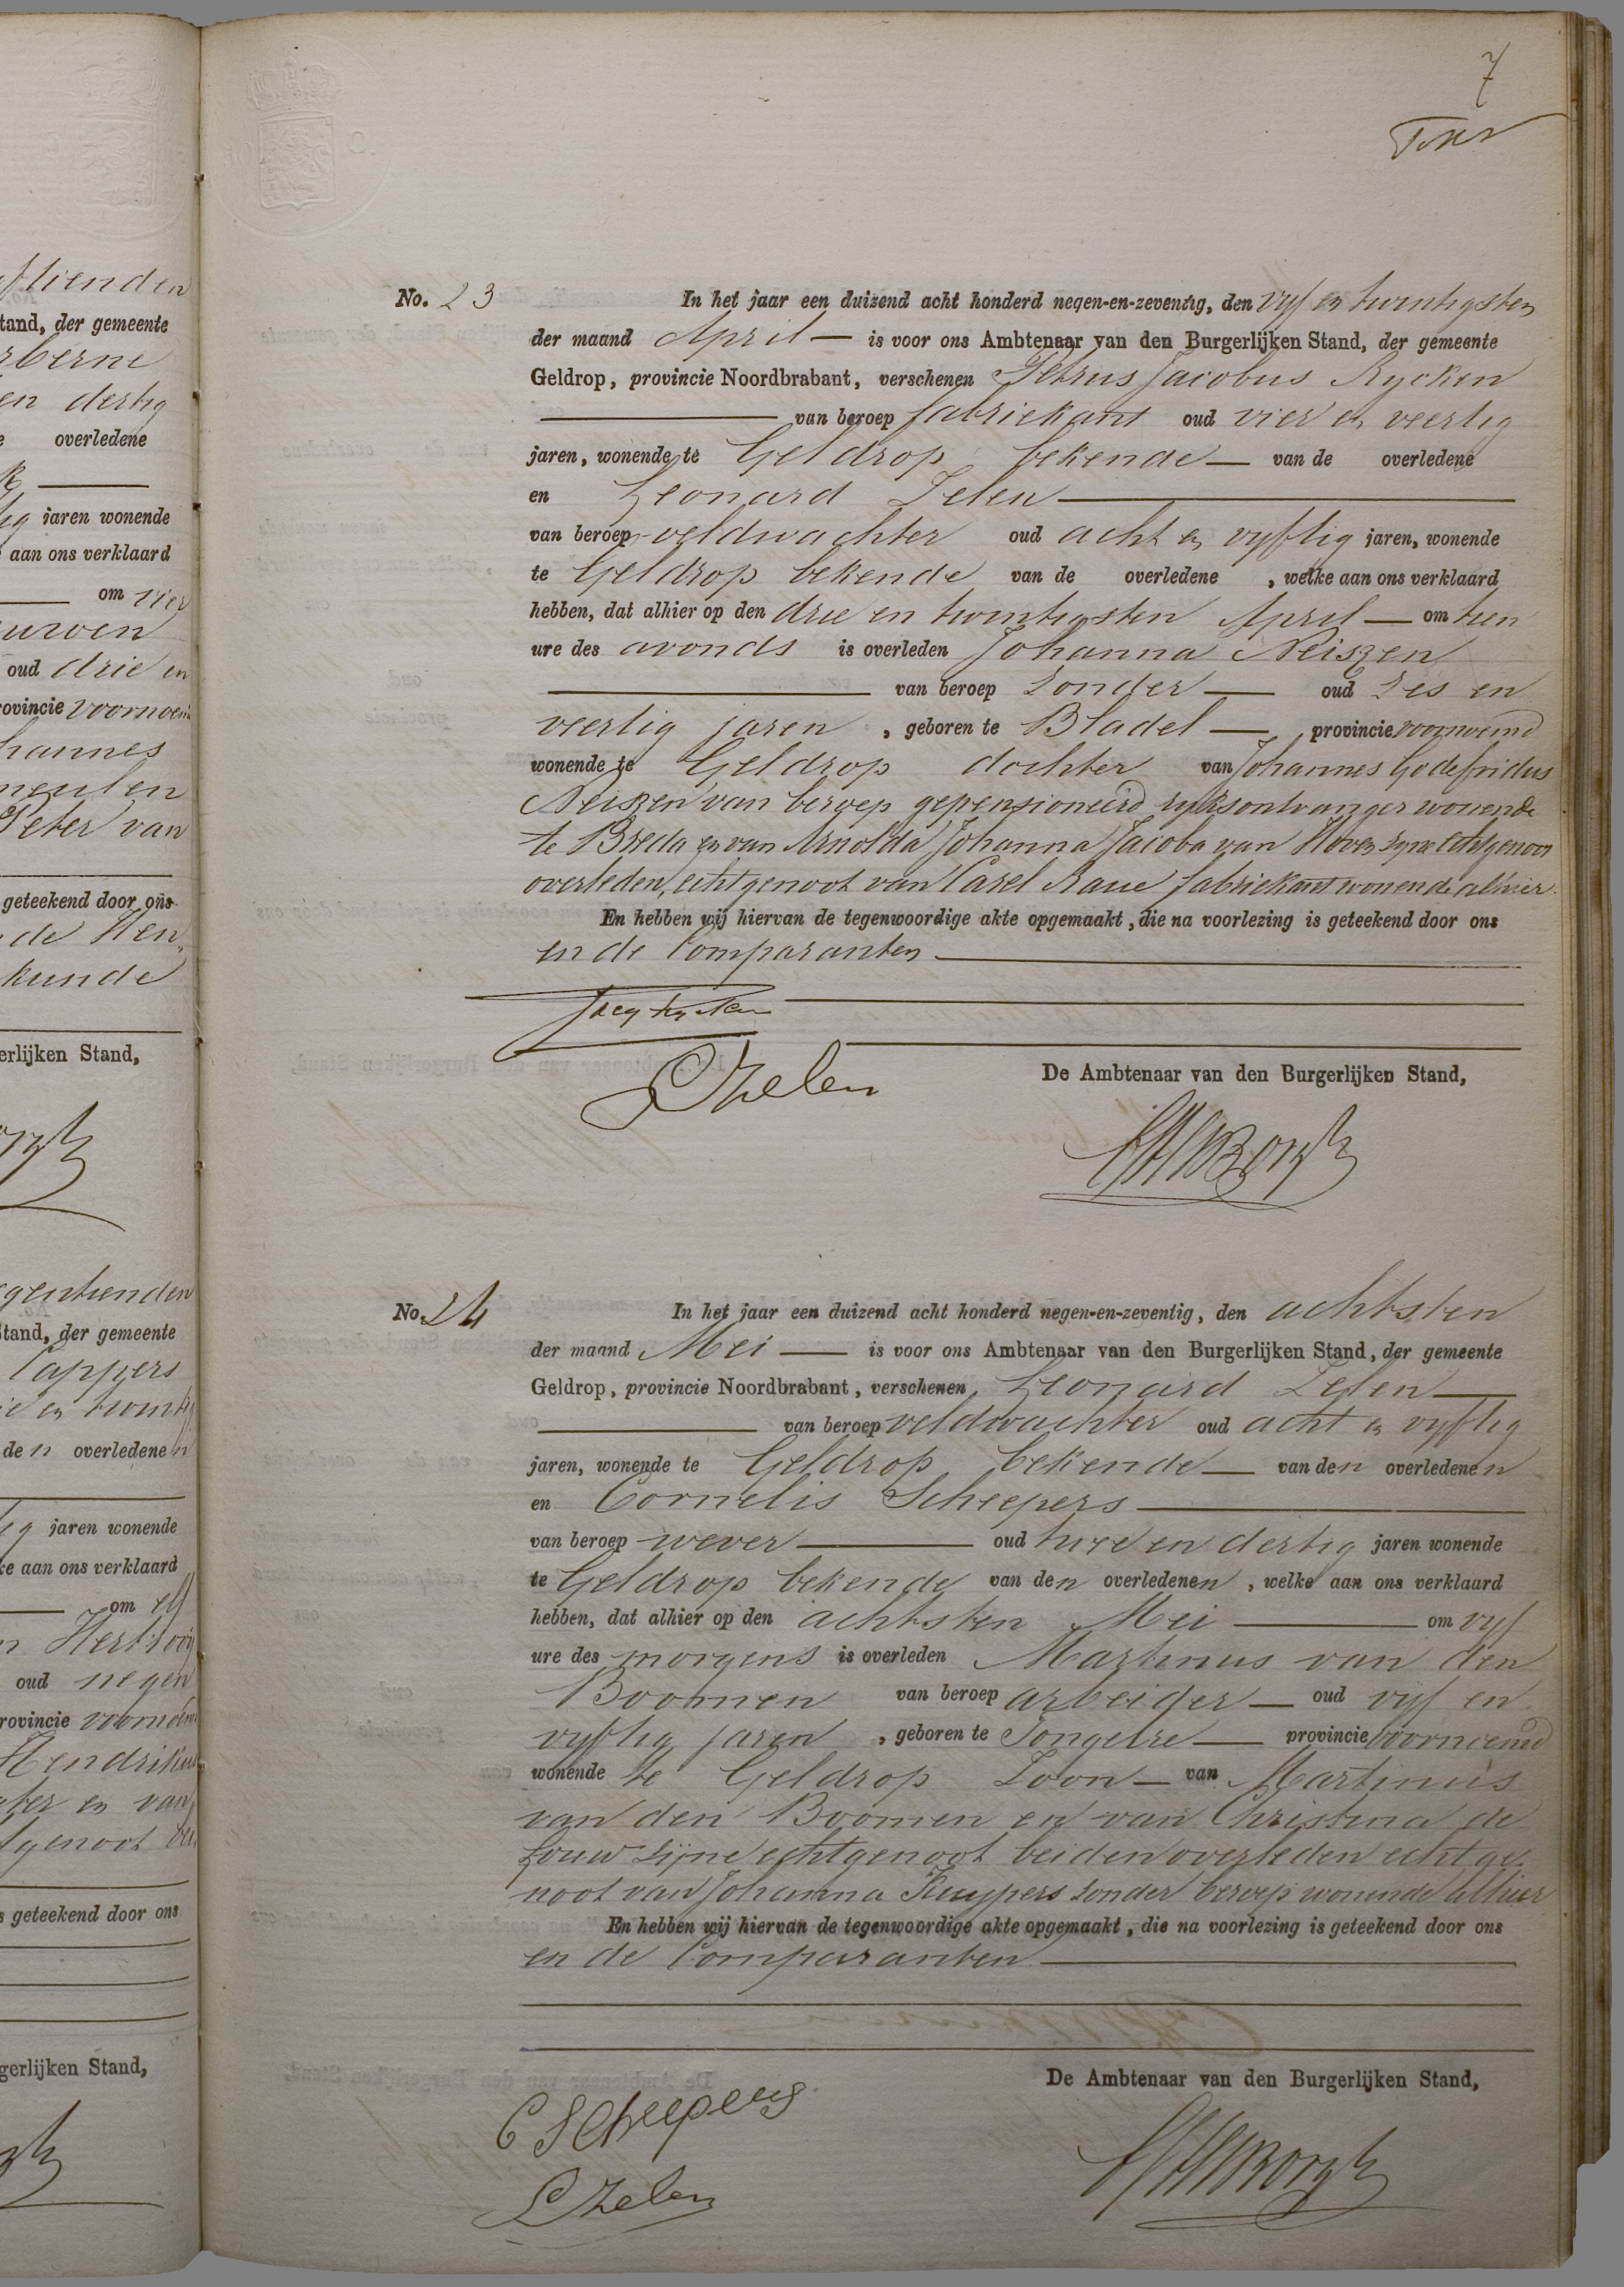 7
No. 23
In het jaar een duizend acht honderd negen-en-zeventig, den vyf en twintigsten
der maand April — is voor ons Ambtenaar van den Burgerlijken Stand, der gemeente
Geldrop, provincie Noordbrabant, verschenen Petrus Jacobus Rycken
van beroep fabriekant oud vier en veertig
jaren, wonende te Geldrop bekende — van de overledene
en Leonard Zelen
van beroep veldwachter oud acht en vyftig jaren, wonende
te Geldrop bekende van de overledene , welke aan ons verklaard
hebben, dat alhier op den drie en twintigsten April — om tien
ure des avonds is overleden Johanna Neiszen
van beroep zonder — oud zes en
veertig jaren , geboren te Bladel — provincie voornoemd
wonende te Geldrop dochter van Johannes Godefridus
Neiszen van beroep gepensioneerd ryksontvanger wonende
te Breda en van Arnolda Johanna Jacoba van Hoven zyne echtgenoot
overleden, echtgenoot van Carel Raue fabriekant wonende alhier.
En hebben wij hiervan de tegenwoordige akte opgemaakt, die na voorlezing is geteekend door ons
en de Comparanten
Jacq Rycken
L Zelen
De Ambtenaar van den Burgerlijken Stand,
No. 24
In het jaar een duizend acht honderd negen-en-zeventig, den achtsten
der maand Mei — is voor ons Ambtenaar van den Burgerlijken Stand, der gemeente
Geldrop, provincie Noordbrabant, verschenen, Leonard Zelen
van beroep veldwachter oud acht en vyftig
jaren, wonende te Geldrop bekende — van den overledenen
en Cornelis Scheepers
van beroep wever oud twee en dertig jaren wonende
te Geldrop bekende van den overledenen , welke aan ons verklaard
hebben, dat alhier op den achtsten Mei — om vyf
ure des morgens is overleden Martinus van den
Boomen van beroep arbeider — oud vyf en
vyftig jaren , geboren te Tongelre — provincie voornoemd
wonende te Geldrop Zoon — van Martinus
van den Boomen en van Christina de
Louw zijne echtgenoot beiden overleden echtge-
noot van Johanna Kuypers zonder beroep wonende alhier
En hebben wij hiervan de tegenwoordige akte opgemaakt, die na voorlezing is geteekend door ons
en de Comparanten
De Ambtenaar van den Burgerlijken Stand,
C Scheepers
L Zelen